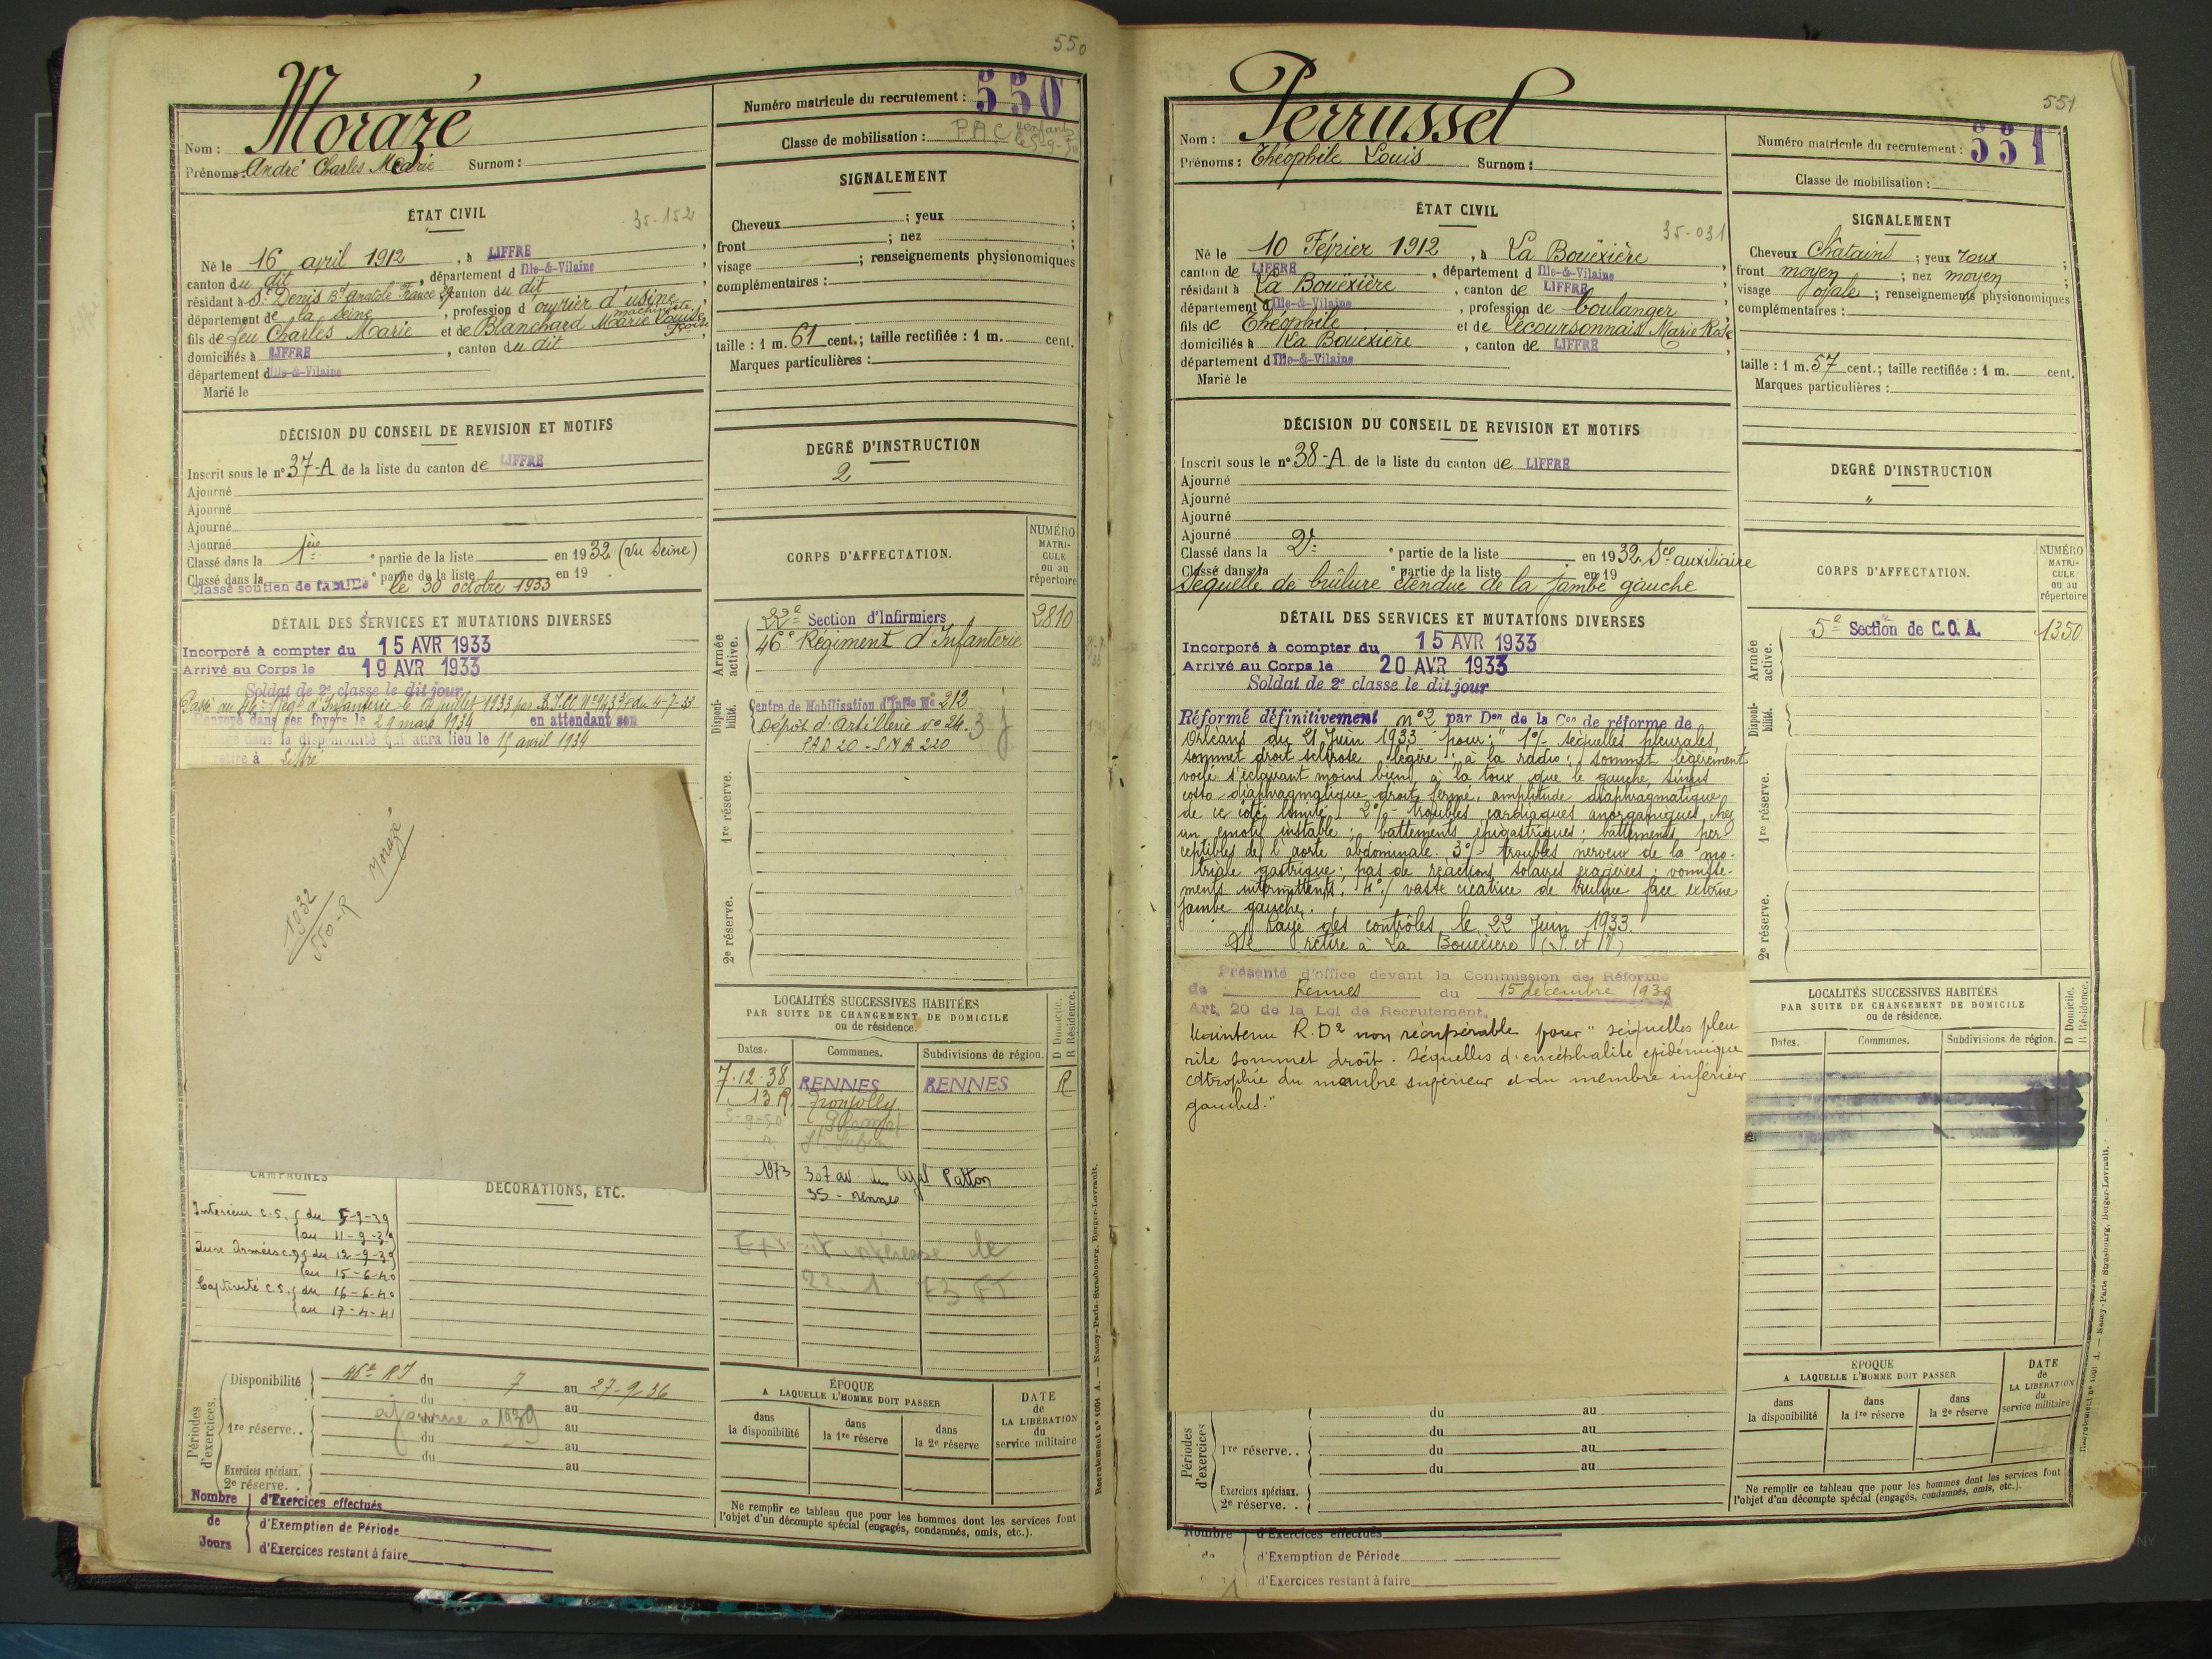 550
Morazé
Nom :
Prénoms : André Charles Marie Surnom :
Numéro matricule du recrutement : 550
Classe de mobilisation : PAC 4 enfants
le 5-9-50
ÉTAT CIVIL
35-152
Né le 16 avril 1912, à LIFFRE,
canton du dit, département d Ille-&-Vilaine,
résidant à St Denis Bd Anatole France, canton du dit
département de la Seine, profession d'ouvrier d'usine
machiniste
fils de feu Charles Marie et de Blanchard Marie Louise
Fçoise
domiciliés à LIFFRE, canton du dit,
département d Ille-&-Vilaine
Marié le
SIGNALEMENT
Cheveux ; yeux ;
front ; nez ;
visage ; renseignements physionomiques
complémentaires :
taille : 1 m. 61 cent. ; taille rectifiée : 1 m. cent.
Marques particulières :
DÉCISION DU CONSEIL DE REVISION ET MOTIFS
Inscrit sous le n° 37-A de la liste du canton de LIFFRE
Ajourné
Ajourné
Ajourné
Ajourné
Classé dans la 1ère partie de la liste en 1932 (vu Seine)
Classé dans la ° partie de la liste en 19 .
Classé soutien de famille le 30 octobre 1933
DEGRÉ D'INSTRUCTION
2
DÉTAIL DES SERVICES ET MUTATIONS DIVERSES
Incorporé à compter du 15 AVR 1933
Arrivé au Corps le 19 AVR 1933
Soldat de 2e classe le dit jour
Passé au 46e Régt d'Infanterie le 14 juillet 1933 par du 4-7-33
Renvoyé dans ses foyers le 29 mars 1934 en attendant son
passage dans la disponibilité qui aura lieu le 15 avril 1934
Se retire à Liffré
Morazé
1932
550-R
CORPS D'AFFECTATION.
NUMÉRO
MATRI-
CULE
ou au
répertoire
Armée
active.
22e Section d'Infirmiers 2810
46e Régiment d'Infanterie
Disponi-
bilité.
Centre de Mobilisation d'Infie No 212
Dépôt d'Artillerie n° 24.
PAD 20 - SNA 220
1re réserve.
2e réserve.
LOCALITÉS SUCCESSIVES HABITÉES
PAR SUITE DE CHANGEMENT DE DOMICILE
ou de résidence.
D Domicile.
R Résidence.
Dates. Communes. Subdivisions de région.
7.12.38 RENNES RENNES R
5-9-50
1973 307 av. du Gal Patton
35 - Rennes
intéressé le
22. 1. 73
CAMPAGNES
DÉCORATIONS, ETC.
Intérieur C.S. du 5-9-39
au 11-9-39
Aux Armées C.D du 12-9-39
au 15-6-40
Captivité C.S. du 16-6-40
au 17-4-41
Périodes
d'exercices.
Disponibilité 46e RI du 7 au 27-9-36
du au
1re réserve.. ajourné à 1939
du au
du au
Exercices spéciaux.
2e réserve. .
Nombre
de
Jours
d'Exercices effectués
d'Exemption de Période
d'Exercices restant à faire
ÉPOQUE
A LAQUELLE L'HOMME DOIT PASSER
dans
la disponibilité
dans
la 1re réserve
dans
la 2e réserve
DATE
de
LA LIBÉRATION
du
service militaire
Ne remplir ce tableau que pour les hommes dont les services font
l'objet d'un décompte spécial (engagés, condamnés, omis, etc.).
Recrutement n° 1001 A. — Nancy-Paris-Strasbourg, Berger-Levrault.
551
Perrussel
Nom :
Prénoms : Théophile Louis Surnom :
Numéro matricule du recrutement : 551
Classe de mobilisation :
ÉTAT CIVIL
35-031
Né le 10 Février 1912, à La Bouëxière,
canton de LIFFRE, département d Ille-&-Vilaine
résidant à La Bouëxière, canton de LIFFRE
département d Ille-&-Vilaine, profession de boulanger
fils de Théophile et de Lecoursonnais Marie Rose
domiciliés à La Bouexière, canton de LIFFRE,
département d Ille-&-Vilaine
Marié le
SIGNALEMENT
Cheveux Chatains ; yeux roux ;
front moyen ; nez moyen ;
visage ovale ; renseignements physionomiques
complémentaires :
taille : 1 m. 57 cent. ; taille rectifiée : 1 m. cent.
Marques particulières :
DÉCISION DU CONSEIL DE REVISION ET MOTIFS
Inscrit sous le n° 38-A de la liste du canton de LIFFRE
Ajourné
Ajourné
Ajourné
Ajourné
Classé dans la 2e ° partie de la liste en 1932. Sce auxiliaire
Classé dans la ° partie de la liste en 19
Séquelle de brûlure étendue de la jambe gauche
DEGRÉ D'INSTRUCTION
"
DÉTAIL DES SERVICES ET MUTATIONS DIVERSES
Incorporé à compter du 15 AVR 1933
Arrivé au Corps le 20 AVR 1933
Soldat de 2e classe le dit jour
Réformé définitivement n°2 par Don de la Con de réforme de
Orléans du 21 Juin 1933 pour : " 1°/- séquelles pleurales,
sommet droit sclérose légère ; à la radio : sommet légèrement
voilé s'éclairant moins bien à la toux que le gauche, sinus
costo diaphragmatique droit fermé, amplitude diaphragmatique
de ce côté limité. 2°/- troubles cardiaques anorganiques chez
un émotif instable : battements épigastriques : battements per-
ceptibles de l'aorte abdominale. 3°/- troubles nerveux de la mo-
trice gastrique ; pas de réactions solaires exagérées : vomisse-
ments intermittents. 4°/ vaste cicatrice de brûlure face externe
jambe gauche.
Rayé des contrôles le 22 Juin 1933.
Se retire à La Bouëxière (I. et V.)
Présenté d'office devant la Commission de Réforme
de Rennes du 15 décembre 1939
Art. 20 de la Loi de Recrutement.
Maintenu R.D2 non récupérable pour " séquelles pleu
rite sommet droit. Séquelles d'encéphalite épidémique
atrophie du membre supérieur et du membre inférieur
gauches."
CORPS D'AFFECTATION.
NUMÉRO
MATRI-
CULE
ou au
répertoire
Armée
active.
5e Section de C.O.A. 1350
Disponi-
bilité.
1re réserve.
2e réserve.
LOCALITÉS SUCCESSIVES HABITÉES
PAR SUITE DE CHANGEMENT DE DOMICILE
ou de résidence.
D Domicile.
R Résidence.
Dates. Communes. Subdivisions de région.
Périodes
d'exercices
du au
1re réserve. . du au
du au
du au
Exercices spéciaux.
2e réserve. .
Nombre
de
d'Exercices effectués
d'Exemption de Période
d'Exercices restant à faire
ÉPOQUE
A LAQUELLE L'HOMME DOIT PASSER
dans
la disponibilité
dans
la 1re réserve
dans
la 2e réserve
DATE
de
LA LIBÉRATION
du
service militaire
Ne remplir ce tableau que pour les hommes dont les services font
l'objet d'un décompte spécial (engagés, condamnés, omis, etc.).
Recrutement n° 1001 A. — Nancy-Paris-Strasbourg, Berger-Levrault.